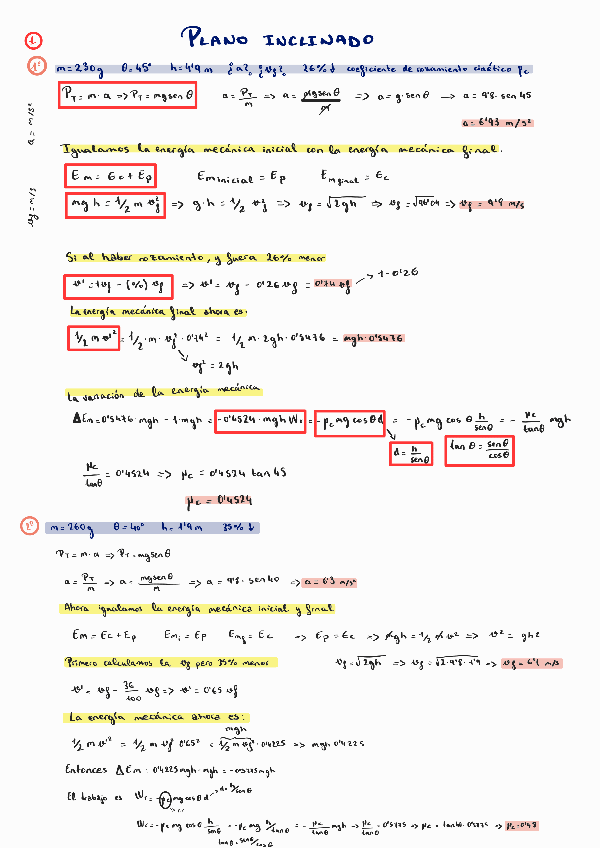 PLANO INCLINADO
1
1º m=230g θ=45º h=4'9 m ¿a?, ¿vf?, 26% ↓ coeficiente de rozamiento cinético μc
PT = m·a => PT = mgsenθ a = PT/m => a = mgsenθ/m => a = g·senθ → a = 9'8·sen45
a = 6'93 m/s²
a = m/s²
vf = m/s
Igualamos la energía mecánica inicial con la energía mecánica final.
Em = Ec + Ep Em inicial = Ep Em final = Ec
mgh = 1/2 m vf² => g·h = 1/2 vf² => vf = √2gh => vf = √96'04 => vf = 9'8 m/s
Si al haber rozamiento, vf fuera 26% menor
v' = 1vf - (%) vf => v' = vf - 0'26 vf = 0'74 vf → 1-0'26
La energía mecánica final ahora es:
1/2 m v'² = 1/2·m·vf²·0'74² = 1/2 m·2gh·0'5476 = mgh·0'5476
vf² = 2gh
La variación de la energía mecánica
ΔEm = 0'5476·mgh - 1·mgh = -0'4524·mgh Wr = -μc mg cosθ d = -μc mg cosθ h/senθ = - μc/tanθ mgh
d = h/senθ tanθ = senθ/cosθ
μc/tanθ = 0'4524 => μc = 0'4524 tan45
μc = 0'4524
2º m=260g θ=40º h=1'9 m 35% ↓
PT = m·a => PT = mgsenθ
a = PT/m => a = mgsenθ/m => a = 9'8·sen40 => a = 6'3 m/s²
Ahora igualamos la energía mecánica inicial y final
Em = Ec + Ep Emi = Ep Emf = Ec => Ep = Ec => mgh = 1/2 m v² => v² = gh2
Primero calculamos la vf pero 35% menor vf = √2gh => vf = √2·9'8·1'9 => vf = 6'1 m/s
v' = vf - 35/100 vf => v' = 0'65 vf
La energía mecánica ahora es:
mgh
1/2 m v'² = 1/2 m vf² 0'65² = 1/2 m vf²·0'4225 => mgh 0'4225
Entonces ΔEm = 0'4225mgh - mgh = -0'5775mgh
El trabajo es Wr = -μc mg cosθ d → d = h/senθ
Wr = -μc mg cosθ h/senθ = -μc mg h/tanθ = - μc/tanθ mgh → μc/tanθ = 0'5775 → μc = tan40·0'5775 → μc = 0'48
tanθ = senθ/cosθ